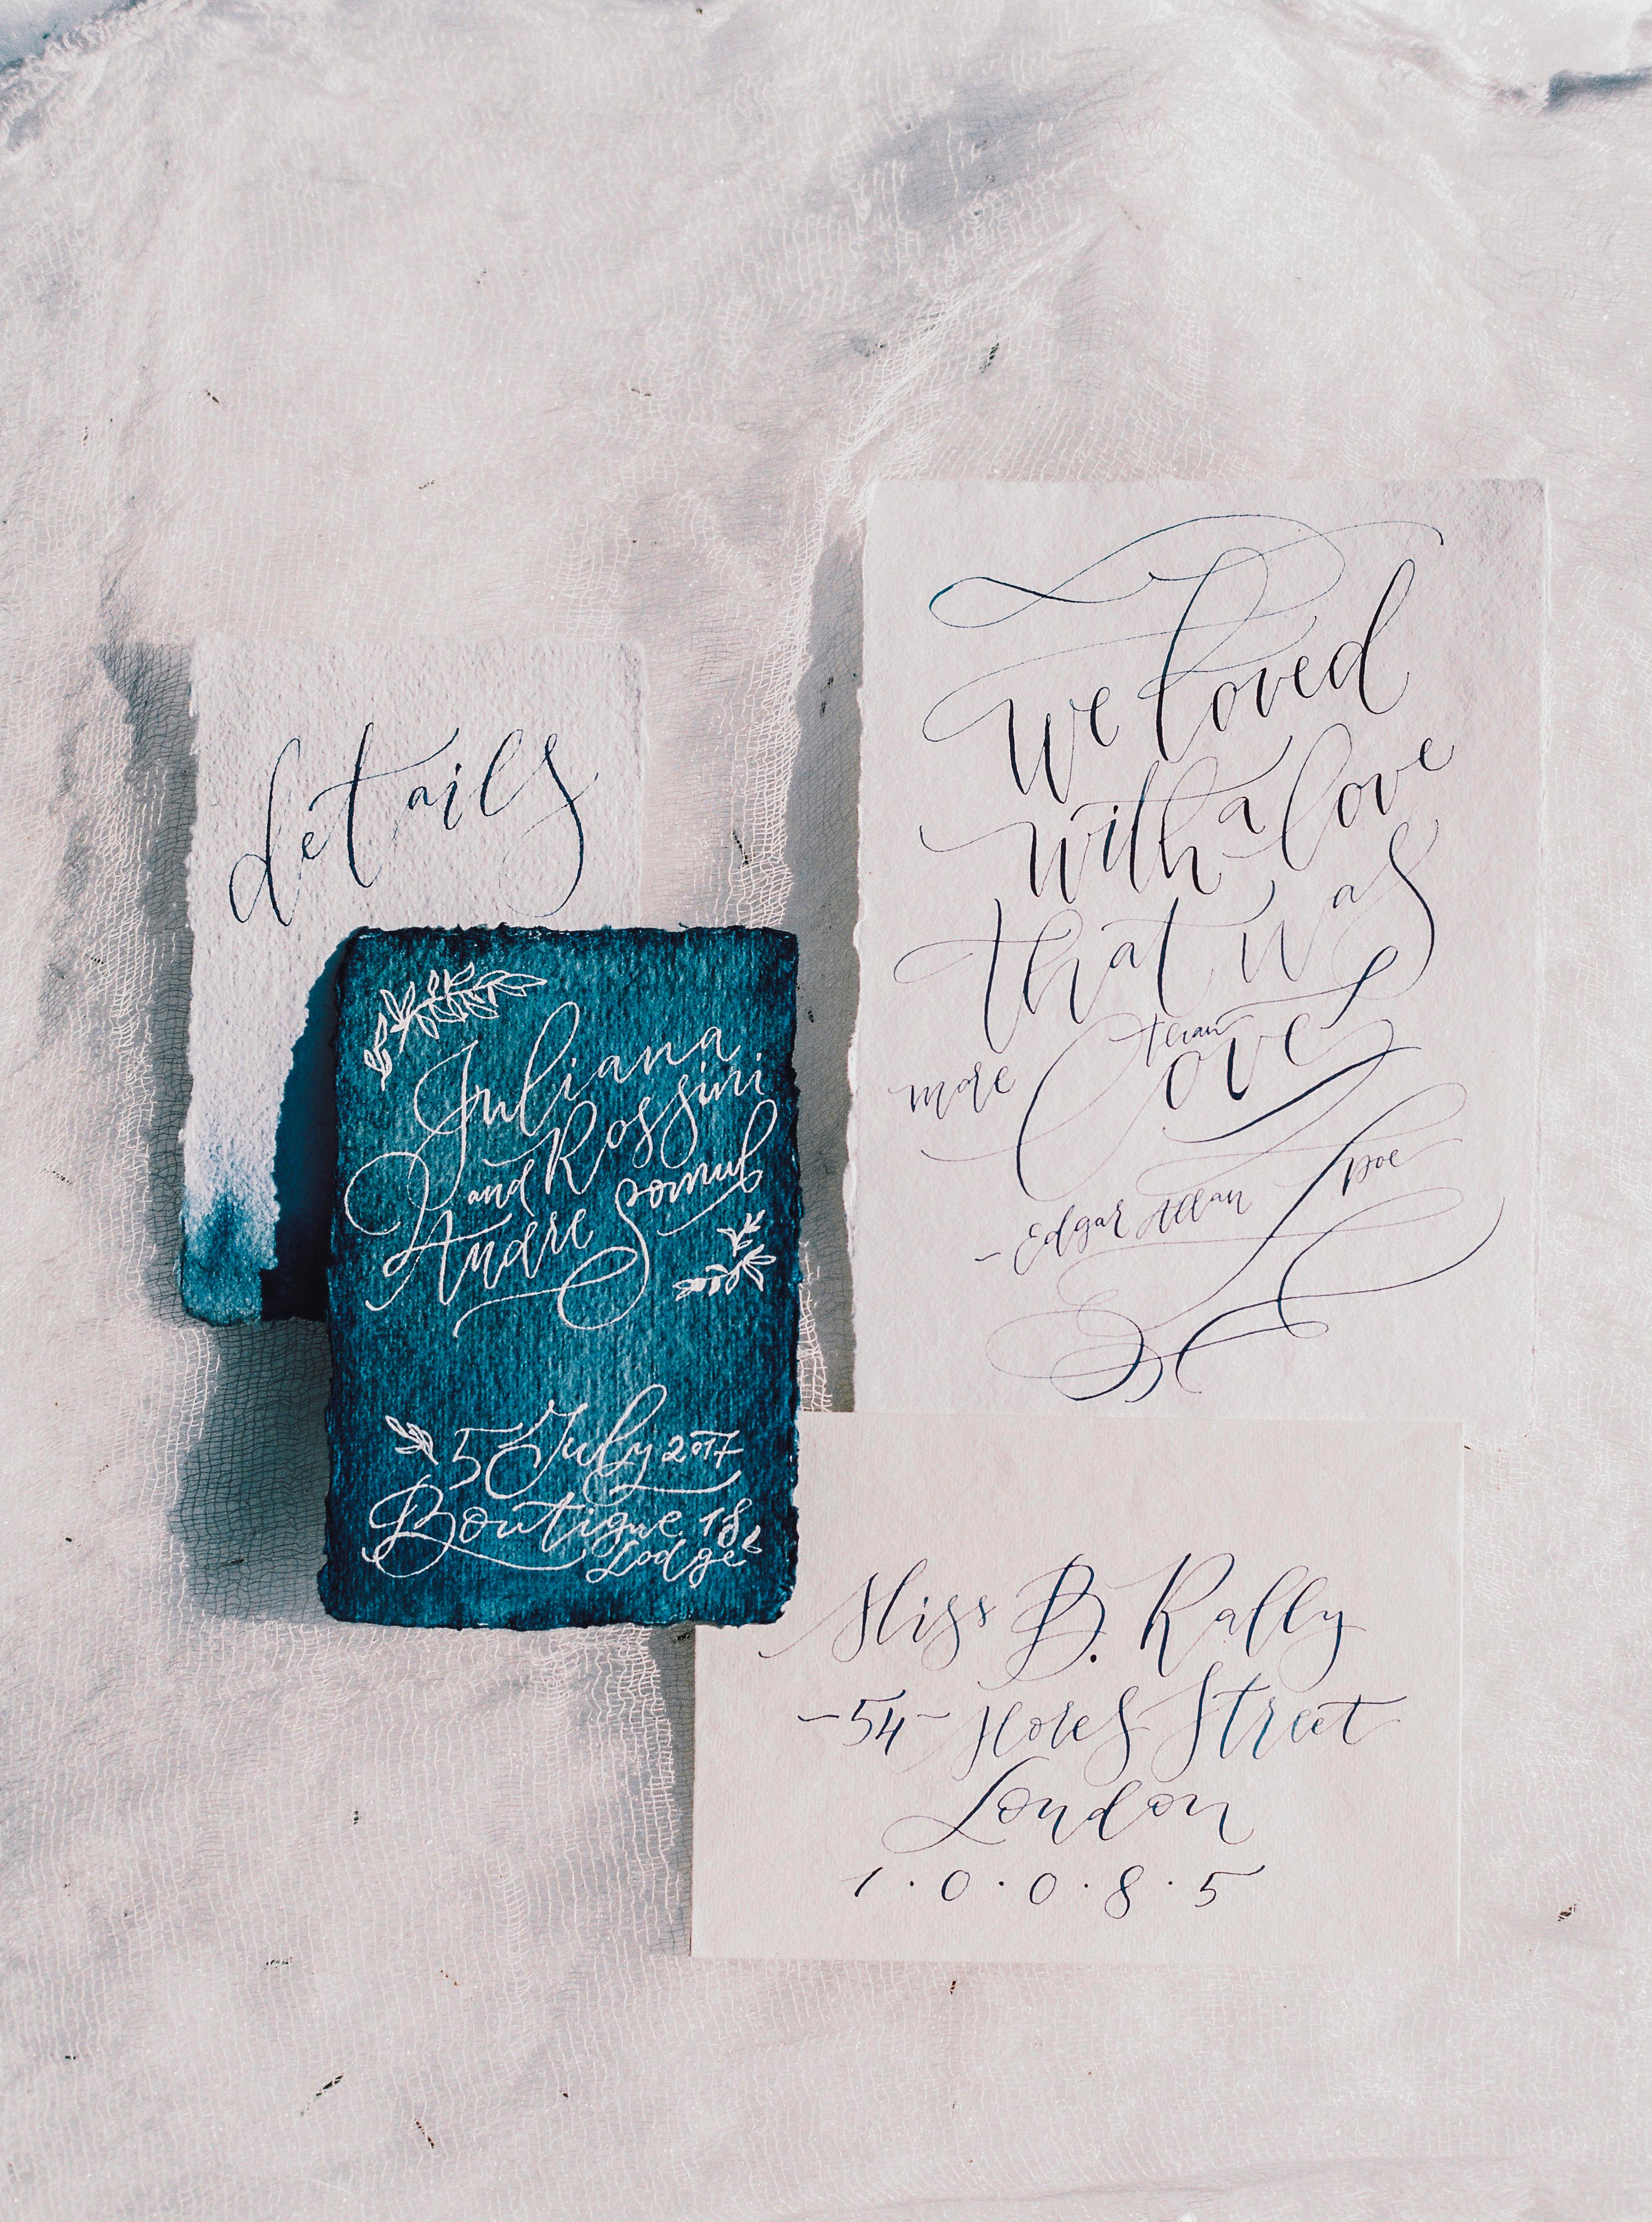 details
Juliana
and Rossini
Andre
5 July 2017
Boutique 18
Lodge
We loved
with a love
that was
more than
love
- Edgar Allan Poe
Miss B. Rally
-54- Hores Street
London
1·0·0·8·5